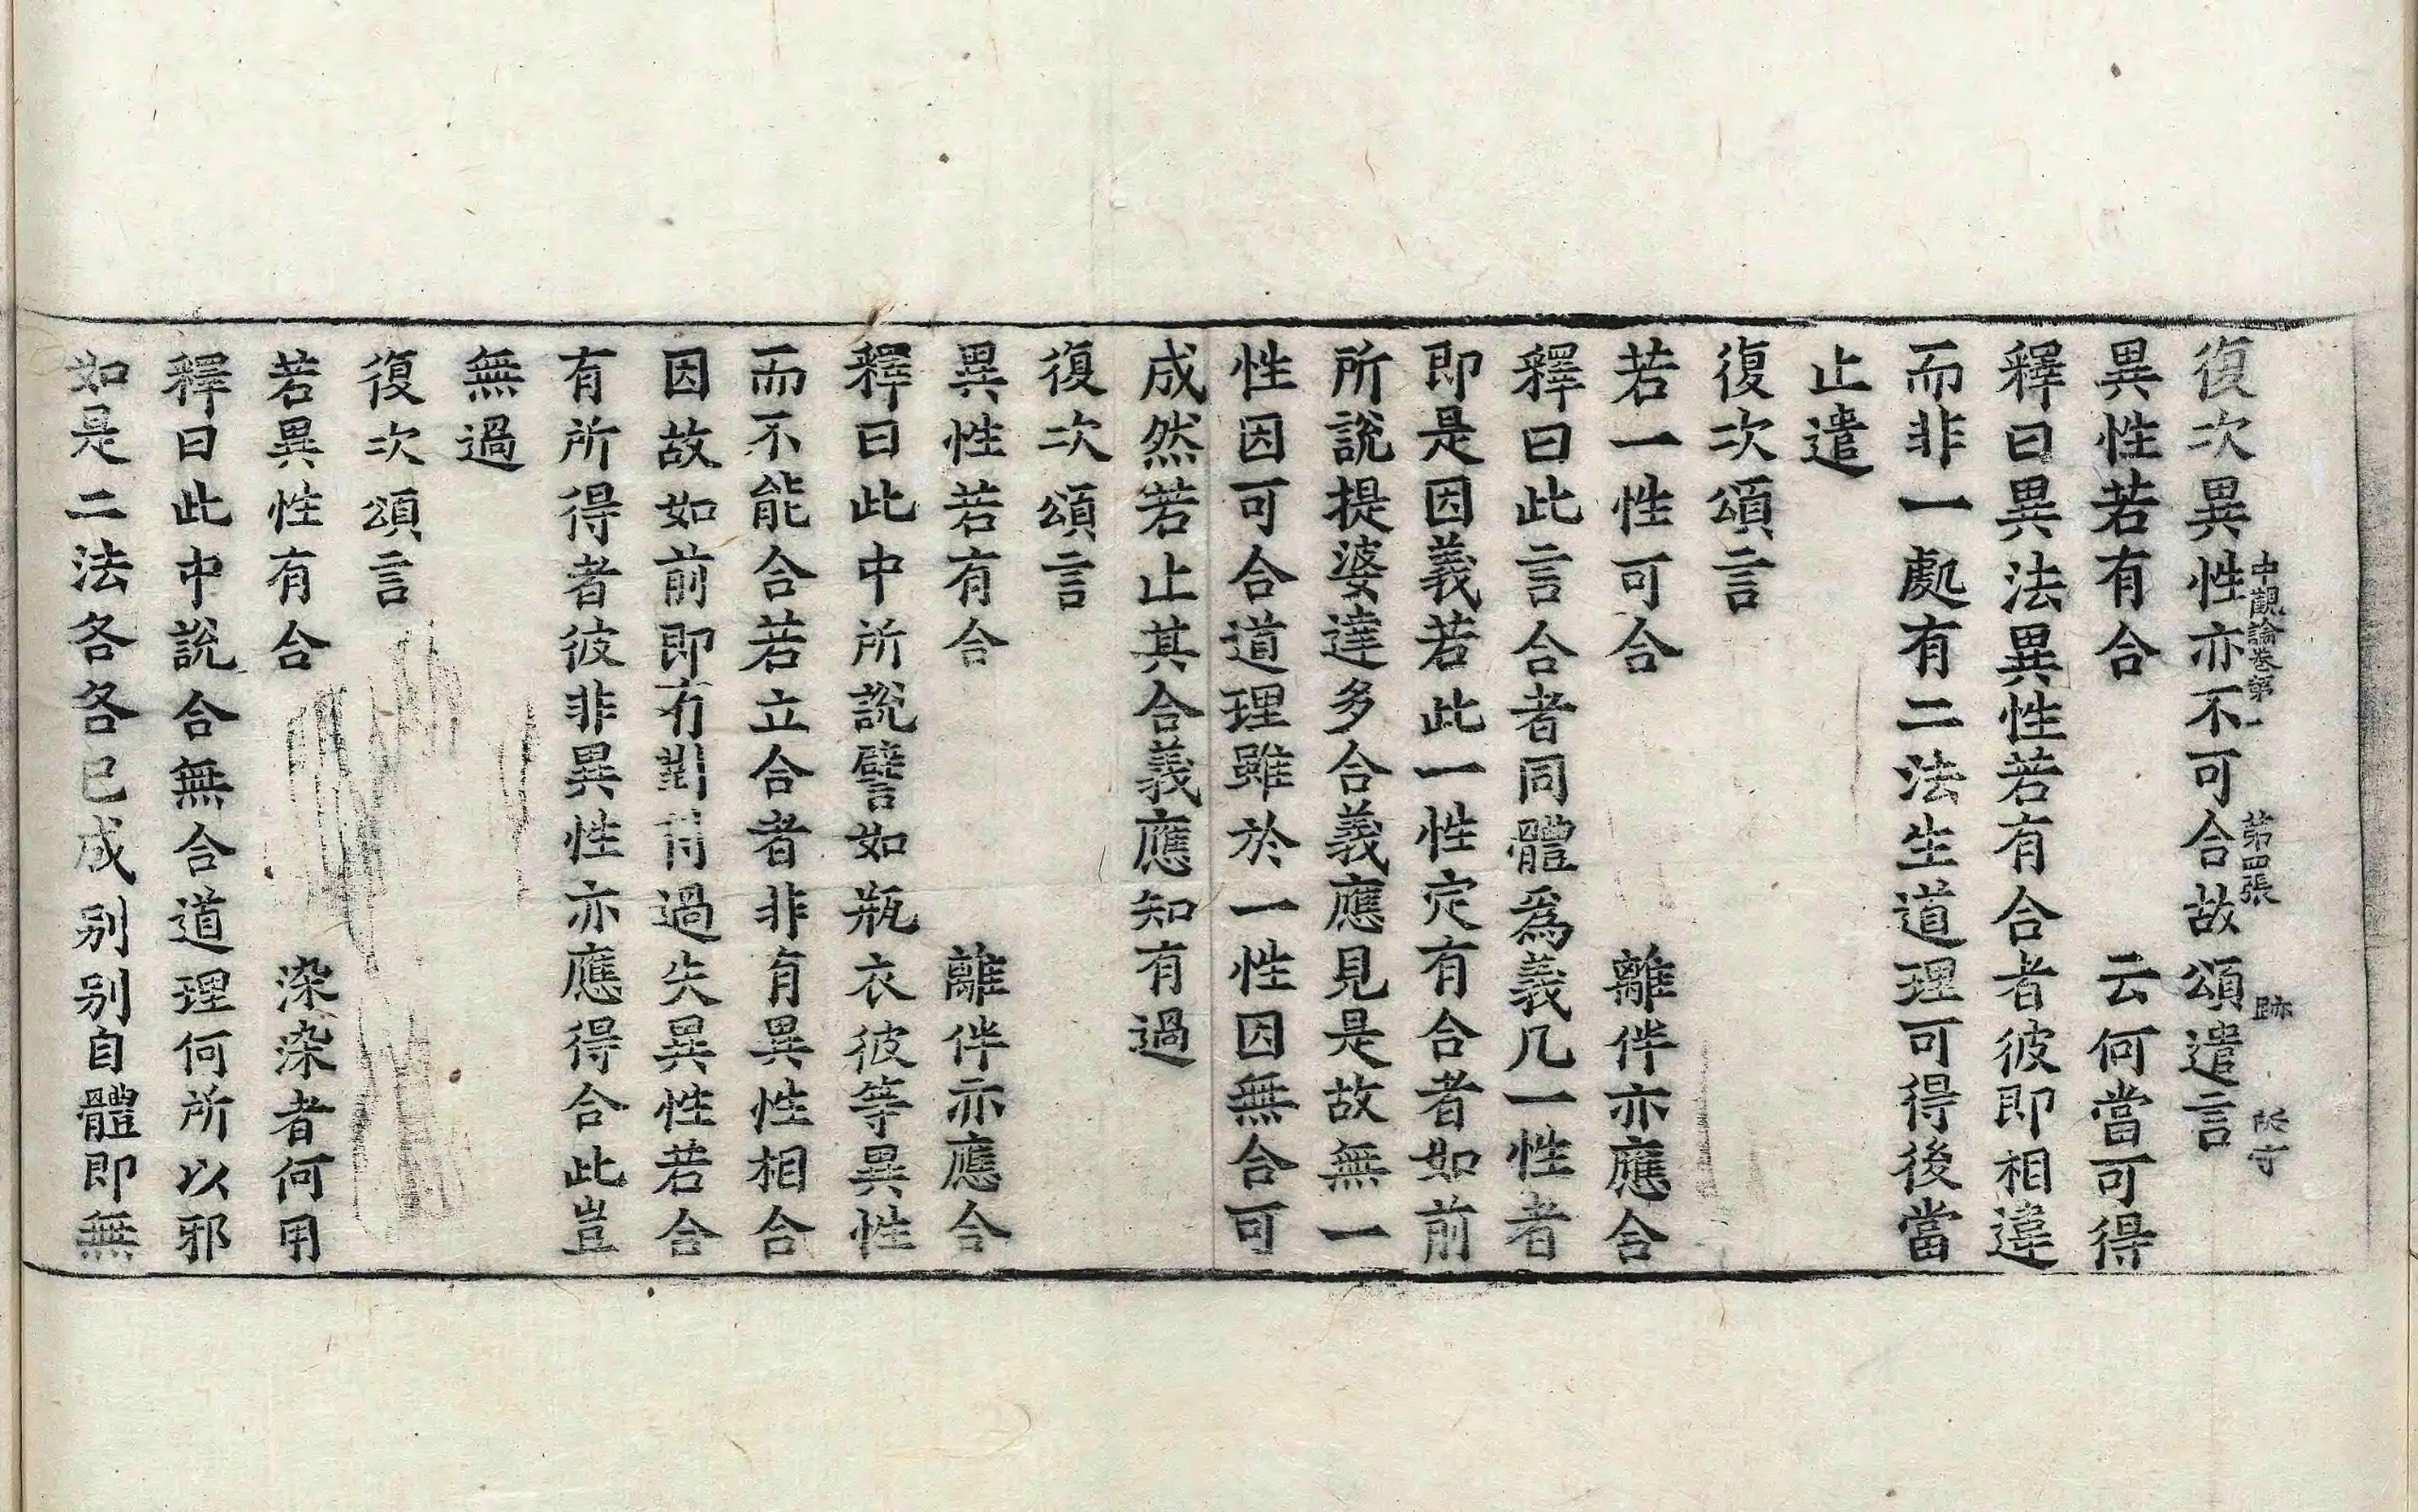 中觀論卷第一 第四張 跡
復次異性亦不可合故頌遣言
異性若有合 云何當可得
釋曰異法異性若有合者彼即相違
而非一處有二法生道理可得後當
止遣
復次頌言
若一性可合 離伴亦應合
釋曰此言合者同體為義凡一性者
即是因義若此一性定有合者如前
所說提婆達多合義應見是故無一
性因可合道理雖於一性因無合可
成然若止其合義應知有過
復次頌言
異性若有合 離伴亦應合
釋曰此中所說譬如瓶衣彼等異性
而不能合若立合者非有異性相合
因故如前即有對過失異性若合
有所得者彼非異性亦應得合此豈
無過
復次頌言
若異性有合 染染者何用
釋曰此中說合無合道理何所以邪
如是二法各各已成别别自體即無